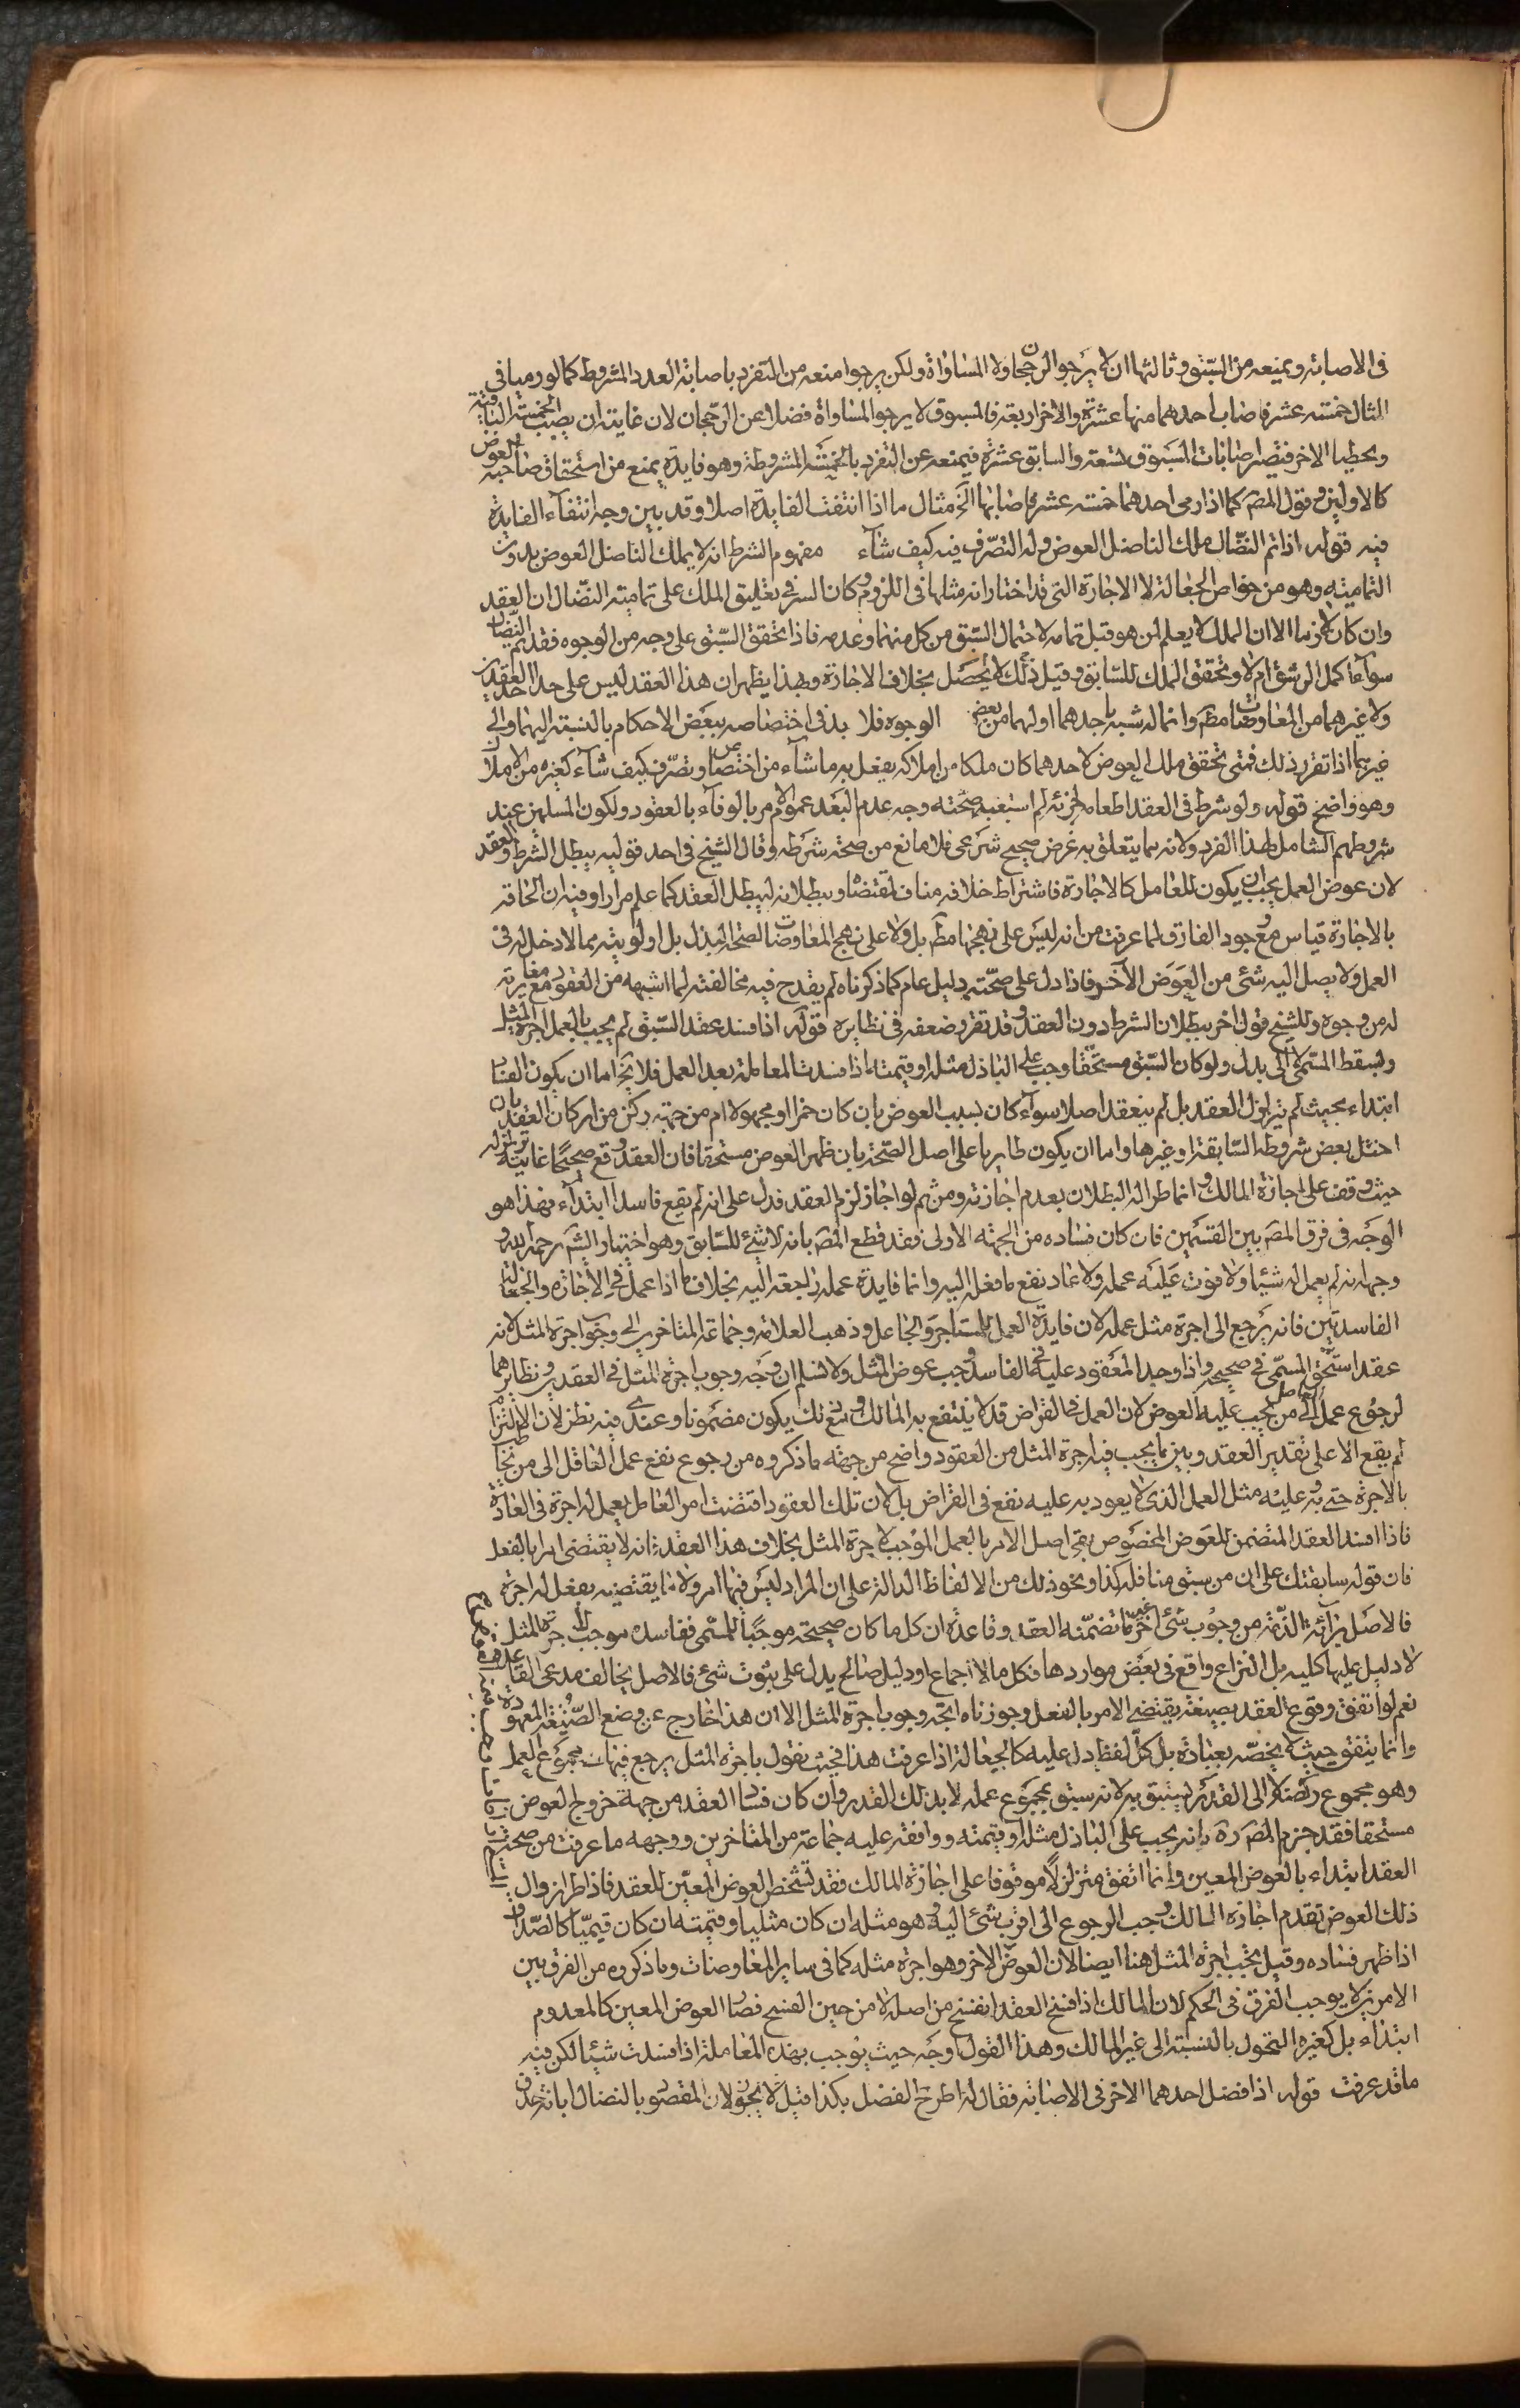 فى الاصابة ويمنعه من السّبق وثالثها ان لا يرجو الرجحان ولا المساواة ولكن يرجوا منعه من التفرد باصابة العدد المشروط كما لو رميا فى
المثال خمسة عشر فاصاب احدهما منها عشرة والاخر اربعة فالمسبوق لا يرجو المساواة فضلا عن الرّجحان لان غايته ان يصيب الخمسة الباقية
ويخطيها الاخر فيصير اصابات المسبوق تسعة والسابق عشرة فيمنعه عن التفرد بالخمسة المشروطة وهو فايدة يمنع من استحقاق صاحبه العوض
كالاولين وقول المصَ كما اذا رمى احدهما خمسة عشر فاصابها الَخ مثال ما اذا انتفت الفايدة اصلا وقد بين وجه انتفآء الفايدة
فيه قوله اذا تم النضّال ملك الناضل العوض وله التصّرف فيه كيف شآء مفهوم الشرط انه لا يملك الناضل العوض بدون
التمامية وهو من خواص الجعالة لا الاجارة التى قد اختار انه مثلها فى اللزوم وكان السر فى تعليق الملك على تمامية النضّال ان العقد
وان كان لازما الا ان الملك لا يعلم لمن هو قبل تمامه لاحتمال السّبق من كل منهما وعدمه فاذا تحقق السّبق على وجه من الوجوه فقد تم النضال
سوآء كمل الرشق ام لا وتحقق الملك للسّابق وقبل ذلك لا يحصل بخلاف الاجارة وبهذا يظهر ان هذا العقد ليس على حد احد العقدين
ولا غيرهما من المعاوضات مطَ وانما له شبه باحدهما او لهما من بعض الوجوه فلا بد فى اختصاصه ببعض الاحكام بالنسبة اليهما والى
غيرهما اذا تقرر ذلك فمتى تحقق ملك العوض لاحدهما كان ملكا من املاكه يفعل به ما شآء من اختصاص وتصّرف كيف شآء كغيره من الاملاك
وهو واضح قوله ولو شرط فى العقد اطعامه لحزبه لم استبعد صحّته وجه عدم البعد عموم الامر بالوفآء بالعقود ولكون المسلمين عند
شروطهم الشامل لهذا الفرد ولانه مما يتعلق به غرض صحيح شرعى فلا مانع من صحة شرطه وقال الشيخ فى احد قوليه يبطل الشرط والعقد
لان عوض العمل يجب ان يكون للعامل كالاجارة فاشتراط خلافه مناف لمقتضاه وببطلانه ليبطل العقد كما علم مرارا وفيه ان الحاقه
بالاجارة قياس مع وجود الفارق لما عرفت من انه ليس على نهجها مطَ بل ولا على نهج المعاوضات لصحة البذل بل اولويته مما لا دخل له فى
العمل ولا يصل اليه شئ من العوض الآخر فاذا دل على صحّته دليل عام كما ذكرناه لم يقدح فيه مخالفته لما اشبهه من العقود مع مغايرته
له من وجوه وللشيخ قول اخر ببطلان الشرط دون العقد وقد تقرر ضعفه فى نظايره قوله اذا فسد عقد السّبق لم يجب بالعمل اجرة المثل
ويسقط المسّمى لا الى بدل ولو كان السّبق مستحّقا وجب على الباذل مثله او قيمته اذا فسدت المعاملة بعد العمل فلا يخَ اما ان يكون الفساد
ابتداء بحيث لم يتزلزل العقد بل لم ينعقد اصلا سوآء كان بسبب العوض بان كان خمرا او مجهولا ام من جهة ركن من اركان العقد بان
اختل بعض شروطه السّابقة او غيرها واما ان يكون طاريا على اصل الصّحة بان ظهر العوض مستحقا فان العقد وقع صحيحًا غايته تزلزله
حيث وقف على اجازة المالك وانما طرا له البطلان بعدم اجازته ومن ثم لو اجاز لزم العقد فدل على انه لم يقع فاسدا ابتدآء فهذا هو
الوجه فى فرق المصَ بين القسَمين فان كان فساده من الجهة الاولى فقد قطع المصَ بانه لا شئ للسّابق وهو اختيار الشيخ رحمه الله و
وجهه انه لم يعمل له شيئا ولا فوت عليه عمله ولا عاد نفع ما فعله اليه وانما فايدة عمله راجعة اليه بخلاف ما اذا عمل فى الاجارة والجعالة
الفاسدتين فانه يرجع الى اجرة مثل عمله لان فايدة العمل للمستاجر والجاعل وذهب العلامة وجماعة المتاخرين الى وجوب اجرة المثل لانه
عقد استحّق المسّمى فى صحيحه فاذا وجد المعقود عليه فى الفاسد وجب عوض المثل ولا نسلم ان وجه وجوب اجرة المثل فى العقدين ونظايرهما
لرجوع عمل العامل الى من يجب عليه العوض لان العمل فى القراض قد لا ينتفع به المالك ومع ذلك يكون مضمونا وعندى فيه نظر لان الالتزام
لم يقع الا على تقدير العقد وبين ما يجب فيه اجرة المثل من العقود واضح من جهة ما ذكروه من رجوع نفع عمل العاقل الى من يخاطب
بالاجرة حتى يرد عليه مثل العمل الذى لا يعود به عليه نفع فى القراض بل لان تلك العقود اقتضت امر العامل بعمل له اجرة فى العادة
فاذا افسد العقد المتضمن للعوض المخصوص بقى اصل الامر بالعمل الموجب لاجرة المثل بخلاف هذا العقد فانه لا يقتضى امرا بالفعل
فان قوله سابقتك على ان من سبق منا فله كذا ونحو ذلك من الالفاظ الدالة على ان المراد ليس فيها امر ولا ما يقتضيه بفعل له اجرة
فالاصل برآءة الذّمة من وجوب شئ اخر غير ما تضمّنه العقد وقاعدة ان كل ما كان صحيحة موجبًا للمسّمى ففاسده موجب لاجرة المثل
لا دليل عليها كليه بل النزاع واقع فى بعض مواردها فكل ما لا اجماع او دليل صالح يدل على ثبوت شئ فالاصل يخالف مدعى القاعدة
نعم لو اتفق وقوع العقد بصيغة يقتضى الامر بالفعل وجوزناه اتجه وجوب اجرة المثل الا ان هذا خارج عن وضع الصّيغة المعهودة
وانما يتفق حيث لا يخصّه بعبارة بل كل لفظ دل عليه كالجعالة اذا عرفت هذا فحيث نقول باجرة المثل يرجع فيها الى مجموع العمل
وهو مجموع ركضه لا الى القدر الذى سبق به لانه سبق بمجموع عمله لا بذلك القدر وان كان فساد العقد من جهة خروج العوض
مستحقا فقد جزم المصَ رَه بانه يجب على الباذل مثله او قيمته ووافقه عليه جماعة من المتاخرين ووجهه ما عرفت من صحة
العقد ابتداء بالعوض المعين وانما اتفق متزلزلاً موقوفا على اجازة المالك فقد تشخص العوض المعيّن للعقد فاذا طرا زوال
ذلك العوض بعدم اجازة المالك وجب الرجوع الى اقرب شئ اليه وهو مثله ان كان مثليا وقيمته ان كان قيميّا كالصّداق
اذا ظهر فساده وقيل يجب اجرة المثل هنا ايضا لان العوض الاخر وهو اجرة مثله كما فى ساير المعاوضات وما ذكروه من الفرق بين
الامرين لا يوجب الفرق فى الحكم لان المالك اذا فسخ العقد انفسخ من اصله لا من حين الفسخ فصار العوض المعين كالمعدوم
ابتداء بل كغيره المتحول بالنسبة الى غير المالك وهذا القول وجَه حيث يوجب بهذه المعاملة اذا فسدت شيئا لكن فيه
ما قد عرفت قوله اذا فضل احدهما الاخر فى الاصابة فقال له اطرح الفضل بكذا قيل لا يجوز لان المقصود بالنضال ابانة حذق